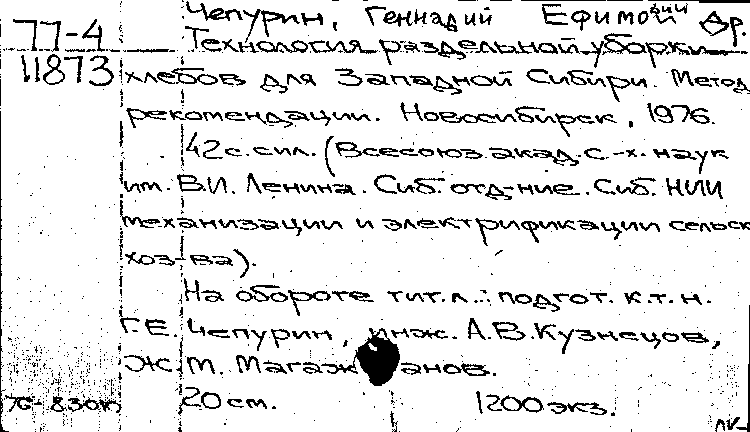 Чепурин, Геннадий Ефимович и др.
77-4 Технология раздельной уборки
11873 хлебов для Западной Сибири. Метод
рекомендации. Новосибирск, 1976.
42с. с ил. (Всесоюз. акад. с.-х. наук
им. В.И. Ленина. Сиб. отд-ние. Сиб. НИИ
механизации и электрификации сельск
хоз-ва).
На обороте тит. л.: подгот. к.т.н.
Г.Е. Чепурин, инж. А.В. Кузнецов,
Ж.М. Магаж анов.
20 см. 1200 экз.